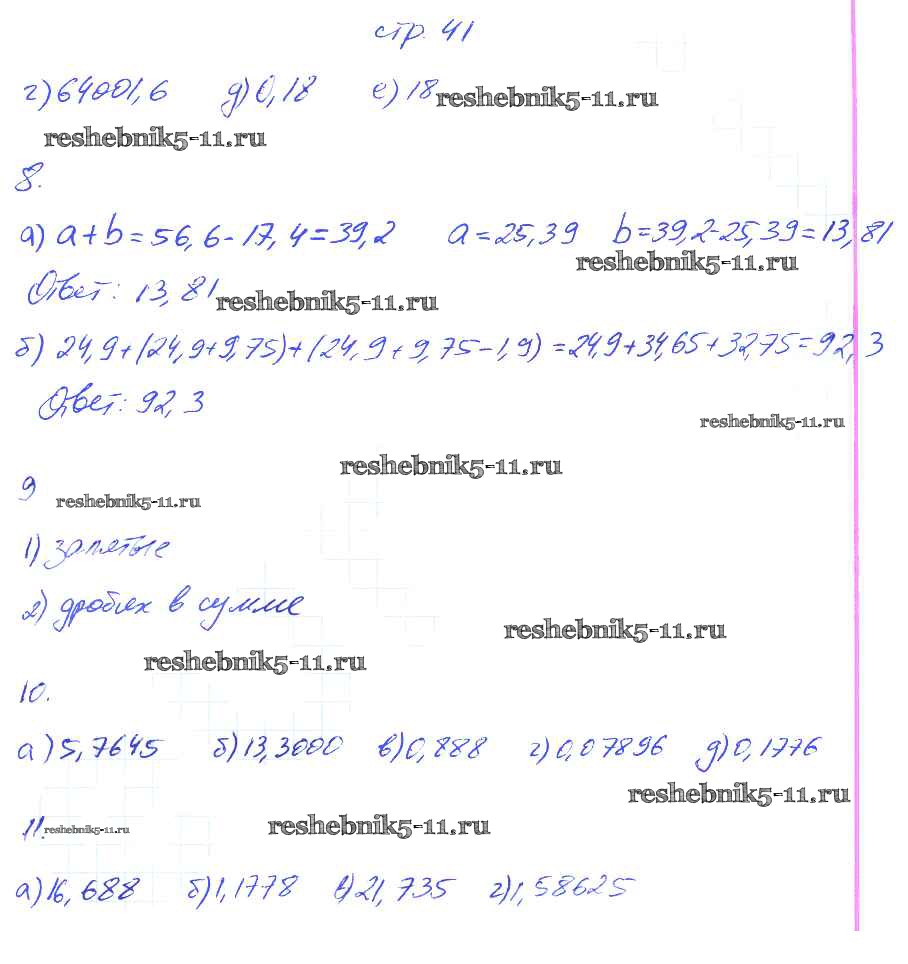 стр. 41
г) 64001,6 д) 0,18 е) 18 reshebnik5-11.ru
reshebnik5-11.ru
8.
а) a + b = 56,6 - 17,4 = 39,2 a = 25,39 b = 39,2 - 25,39 = 13,81
reshebnik5-11.ru
Ответ: 13,81 reshebnik5-11.ru
б) 24,9 + (24,9 + 9,75) + (24,9 + 9,75 - 1,9) = 24,9 + 34,65 + 32,75 = 92,3
Ответ: 92,3
reshebnik5-11.ru
reshebnik5-11.ru
9 reshebnik5-11.ru
1) запятые
2) дробях в сумме
reshebnik5-11.ru
reshebnik5-11.ru
10.
а) 5,7645 б) 13,3000 в) 0,888 г) 0,07896 д) 0,1776
reshebnik5-11.ru
11. reshebnik5-11.ru reshebnik5-11.ru
а) 16,688 б) 1,1778 в) 21,735 г) 1,58625